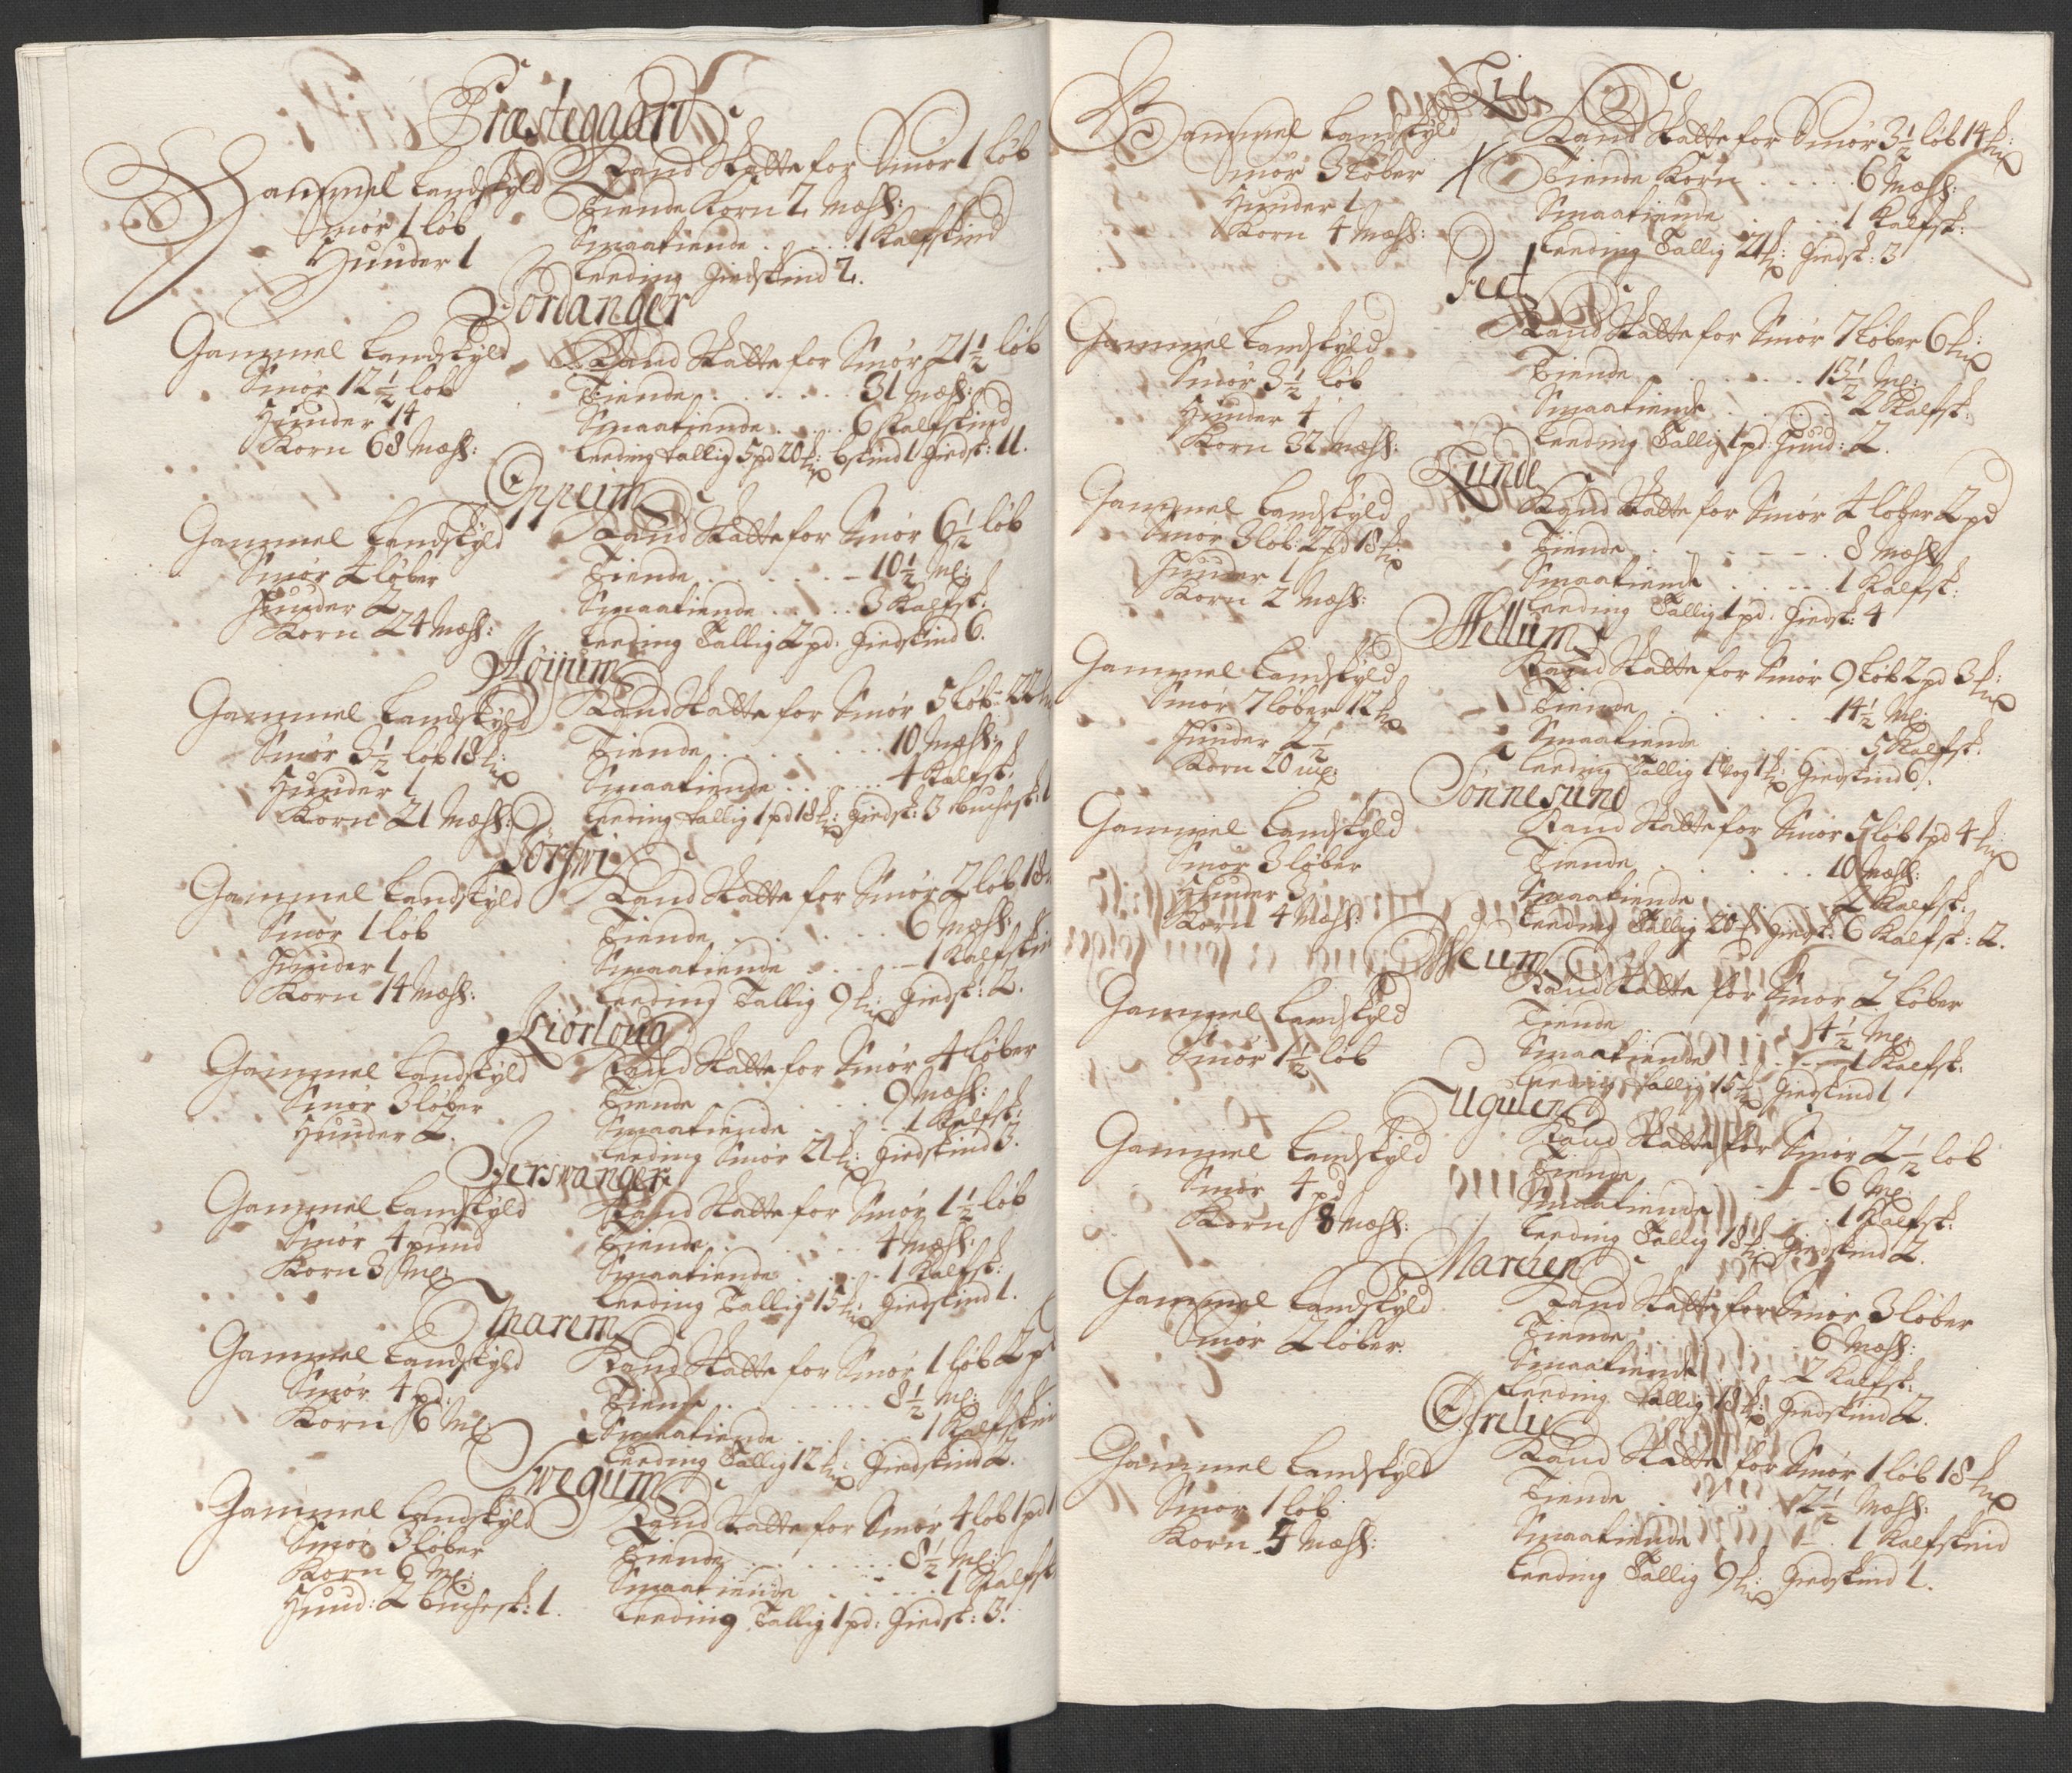 Præstegaard
Gammel Landskyld
Smør 1 løb
Huuder 1
Rand Skatte for Smør 1 løb
Tiende Korn 2 mæhl:
Smaatiende . . . . 1 Kalfskind
Leeding Giedskind 2.
Jordanger
Gammel Landskyld
Smør 12 1/2 løb
Huuder 14
Korn 68 Mæhl:
Rand Skatte for Smør 21 1/2 løb
Tiende . . . . . . 31 mæhl:
Smaatiende . . . . 6 Kalfskind
Leeding tallig 5 pd 20 mk: bskind 1 Giedsk: 11.
Oppeim
Gammel Landskyld
Smør 4 løber
Huuder 2
Korn 24 Mæhl:
Rand Skatte for Smør 6 1/2 løb
Tiende . . . . . . 10 1/2 Ml:
Smaatiende . . . . 3 Kalfsk:
Leeding Tallig 2 pd: Giedskind 6.
Høijum
Gammel Landskyld
Smør 3 1/2 løb 18 mk:
Huuder 1
Korn 21 Mæhl:
Rand Skatte for Smør 5 løb 22
Tiende . . . . . . 10 Mæhl:
Smaatiende . . . . . 4 Kalfsk:
Leeding tallig 1 pd 18 mk: Giedsk: 3 buchesk: 1
Gammel Landskyld
Smør 1 løb
Huuder 1
Korn 14 Mæhl:
Rand Skatte for Smør 2 løb 18
Tiende . . . . . . 6 Mæhl:
Smaatiende . . . . 1 Kalfskin
Leeding Tallig 9 mk: Giedsk: 2.
Kiørloug
Gammel Landskyld
Smør 3 løber
Huuder 2.
Rand Skatte for Smør 4 løber
Tiende . . . . . 9 Mæhl:
Smaatiende . . . . 1 Kalfsk:
Leeding Smør 21 mk: Giedskind 3.
Jerswanger
Gammel Landskyld
Smør 4 pund
Korn 3 Ml:
Rand Skatte for Smør 1 1/2 løb
Tiende . . . . . . 4 Mæhl:
Smaatiende . . . . 1 Kalfsk:
Leeding Tallig 15 mk: Giedskind 1.
Gammel Landskyld
Smør 4 pd:
Korn 6 Ml:
Rand Skatte for Smør 1 løb 2 pd
Tiende . . . . . . 8 1/2 Ml:
Smaatiende . . . . 1 Kalfskin
Leeding Tallig 12 mk: Giedskind 2.
Swegum
Gammel Landskyld
Smør 3 løber
Korn 6 Ml:
Huud: 2 buchesk: 1.
Rand Skatte for Smør 4 løb 1 pd 1
Tiende . . . . . . 8 1/2 Ml:
Smaatiende . . . . 1 Kalfsk
Leeding Tallig 1 pd: Giedsk: 3.
Gammel Landskyld
Smør 3 løber
Huuder 1
Korn 4 Mæhl:
Rand Skatte for Smør 3 1/2 løb 14 mk:
Tiende Korn . . . . . 6 Mæhl:
Smaatiende . . . . 1 Kalfsk:
Leeding Tallig 21 mk: Giedsk: 3
Feet
Gammel Landskyld
Smør 3 1/2 løb
Huuder 4
Korn 32 Mæhl:
Rand Skatte for Smør 7 løber 6 mk:
Tiende . . . . . . 13 1/2 Ml:
Smaatiende . . . . 2 Kalfsk:
Leeding Tallig 1 pd: Huud: 2.
Lunde
Gammel Landskyld
Smør 3 løb: 2 pd 18 mk:
Huuder 1
Korn 2 Mæhl:
Rand Skatte for Smør 4 løber 2 pd
Tiende . . . . . . 8 Mæhl
Smaatiende . . . . 1 Kalfsk:
Leeding Tallig 1 pd: Giedsk: 4
Hellum
Gammel Landskyld
Smør 7 løber 12 mk
Huuder 2 1/2
Korn 20 ml:
Rand Skatte for Smør 9 løb 2 pd 3 mk:
Tiende . . . . . . 14 1/2 Ml:
Smaatiende . . . . 5 Kalfsk:
Leeding Tallig 1 Vog 1 mk: Giedskind 6.
Sønnesund
Gammel Landskyld
Smør 3 løber
Huuder 3
Korn 4 Mæhl:
Rand Skatte for Smør 5 løb 1 pd 4 mk:
Tiende . . . . . . 10 Mæhl:
Smaatiende . . . . 2 Kalfsk:
Leeding Tallig 20 mk Giedsk: 6 Kalfsk: 2.
Gammel Landskyld
Smør 1 1/2 løb
Rand Skatte for Smør 2 løber
Tiende . . . . . . 4 1/2 Ml:
Smaatiende . . . . 1 Kalfsk:
Leeding tallig 15 mk Giedskind 1
Ugulen
Gammel Landskyld
Smør 4 pd
Korn 8 Mæhl:
Rand Skatte for Smør 2 1/2 løb
Tiende . . . . . . 6 Ml
Smaatiende . . . . 1 Kalfsk:
Leeding Tallig 18 mk Giedskind 2.
Mareien
Gammel Landskyld
Smør 2 løber.
Rand Skatte for Smør 3 løber
Tiende . . . . . . 6 Mæhl:
Smaatiende . . . . 2 Kalfsk:
Leeding tallig 18 mk: Giedskind 2.
Gammel Landskyld
Smør 1 løb
Korn 4 Mæhl:
Rand Skatte for Smør 1 løb 18 mk
Tiende . . . . . 2 1/2 Mæhl:
Smaatiende . . . . 1 Kalfskind
Leeding Tallig 9 mk: Giedskind 1.